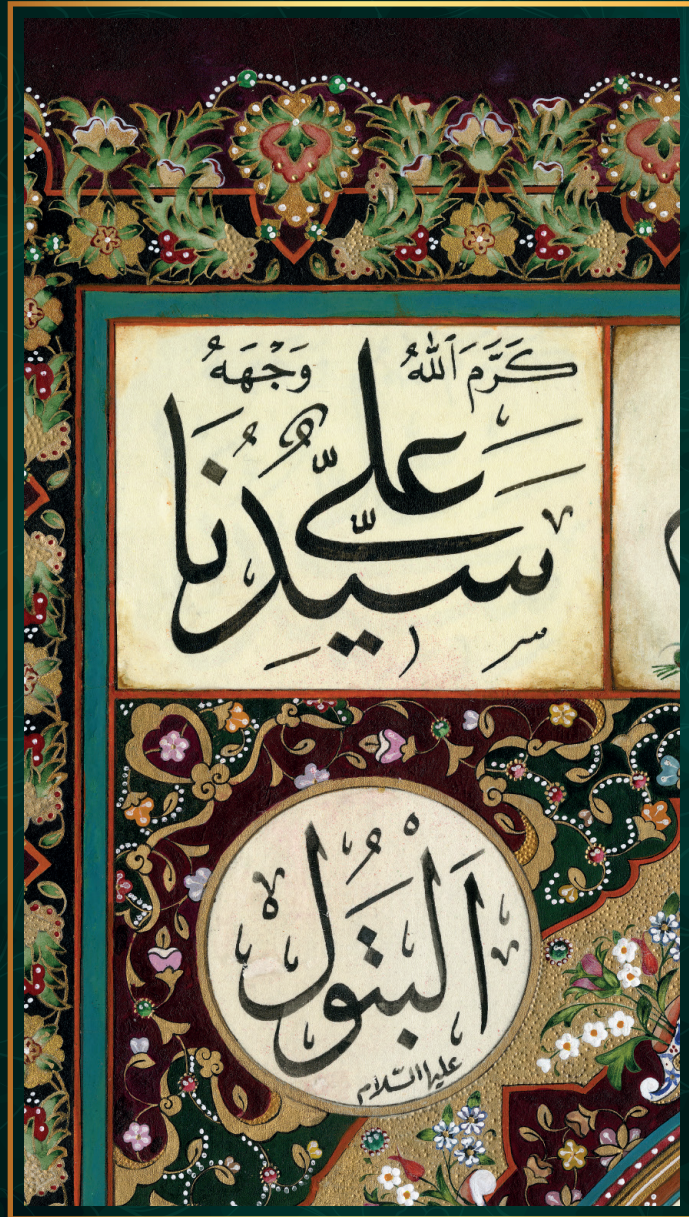 كَرَّمَ اللهُ وَجْهَهُ
سَيِّدُنَا عَلِيّ
اَلْبَتُول
عليها السّلام